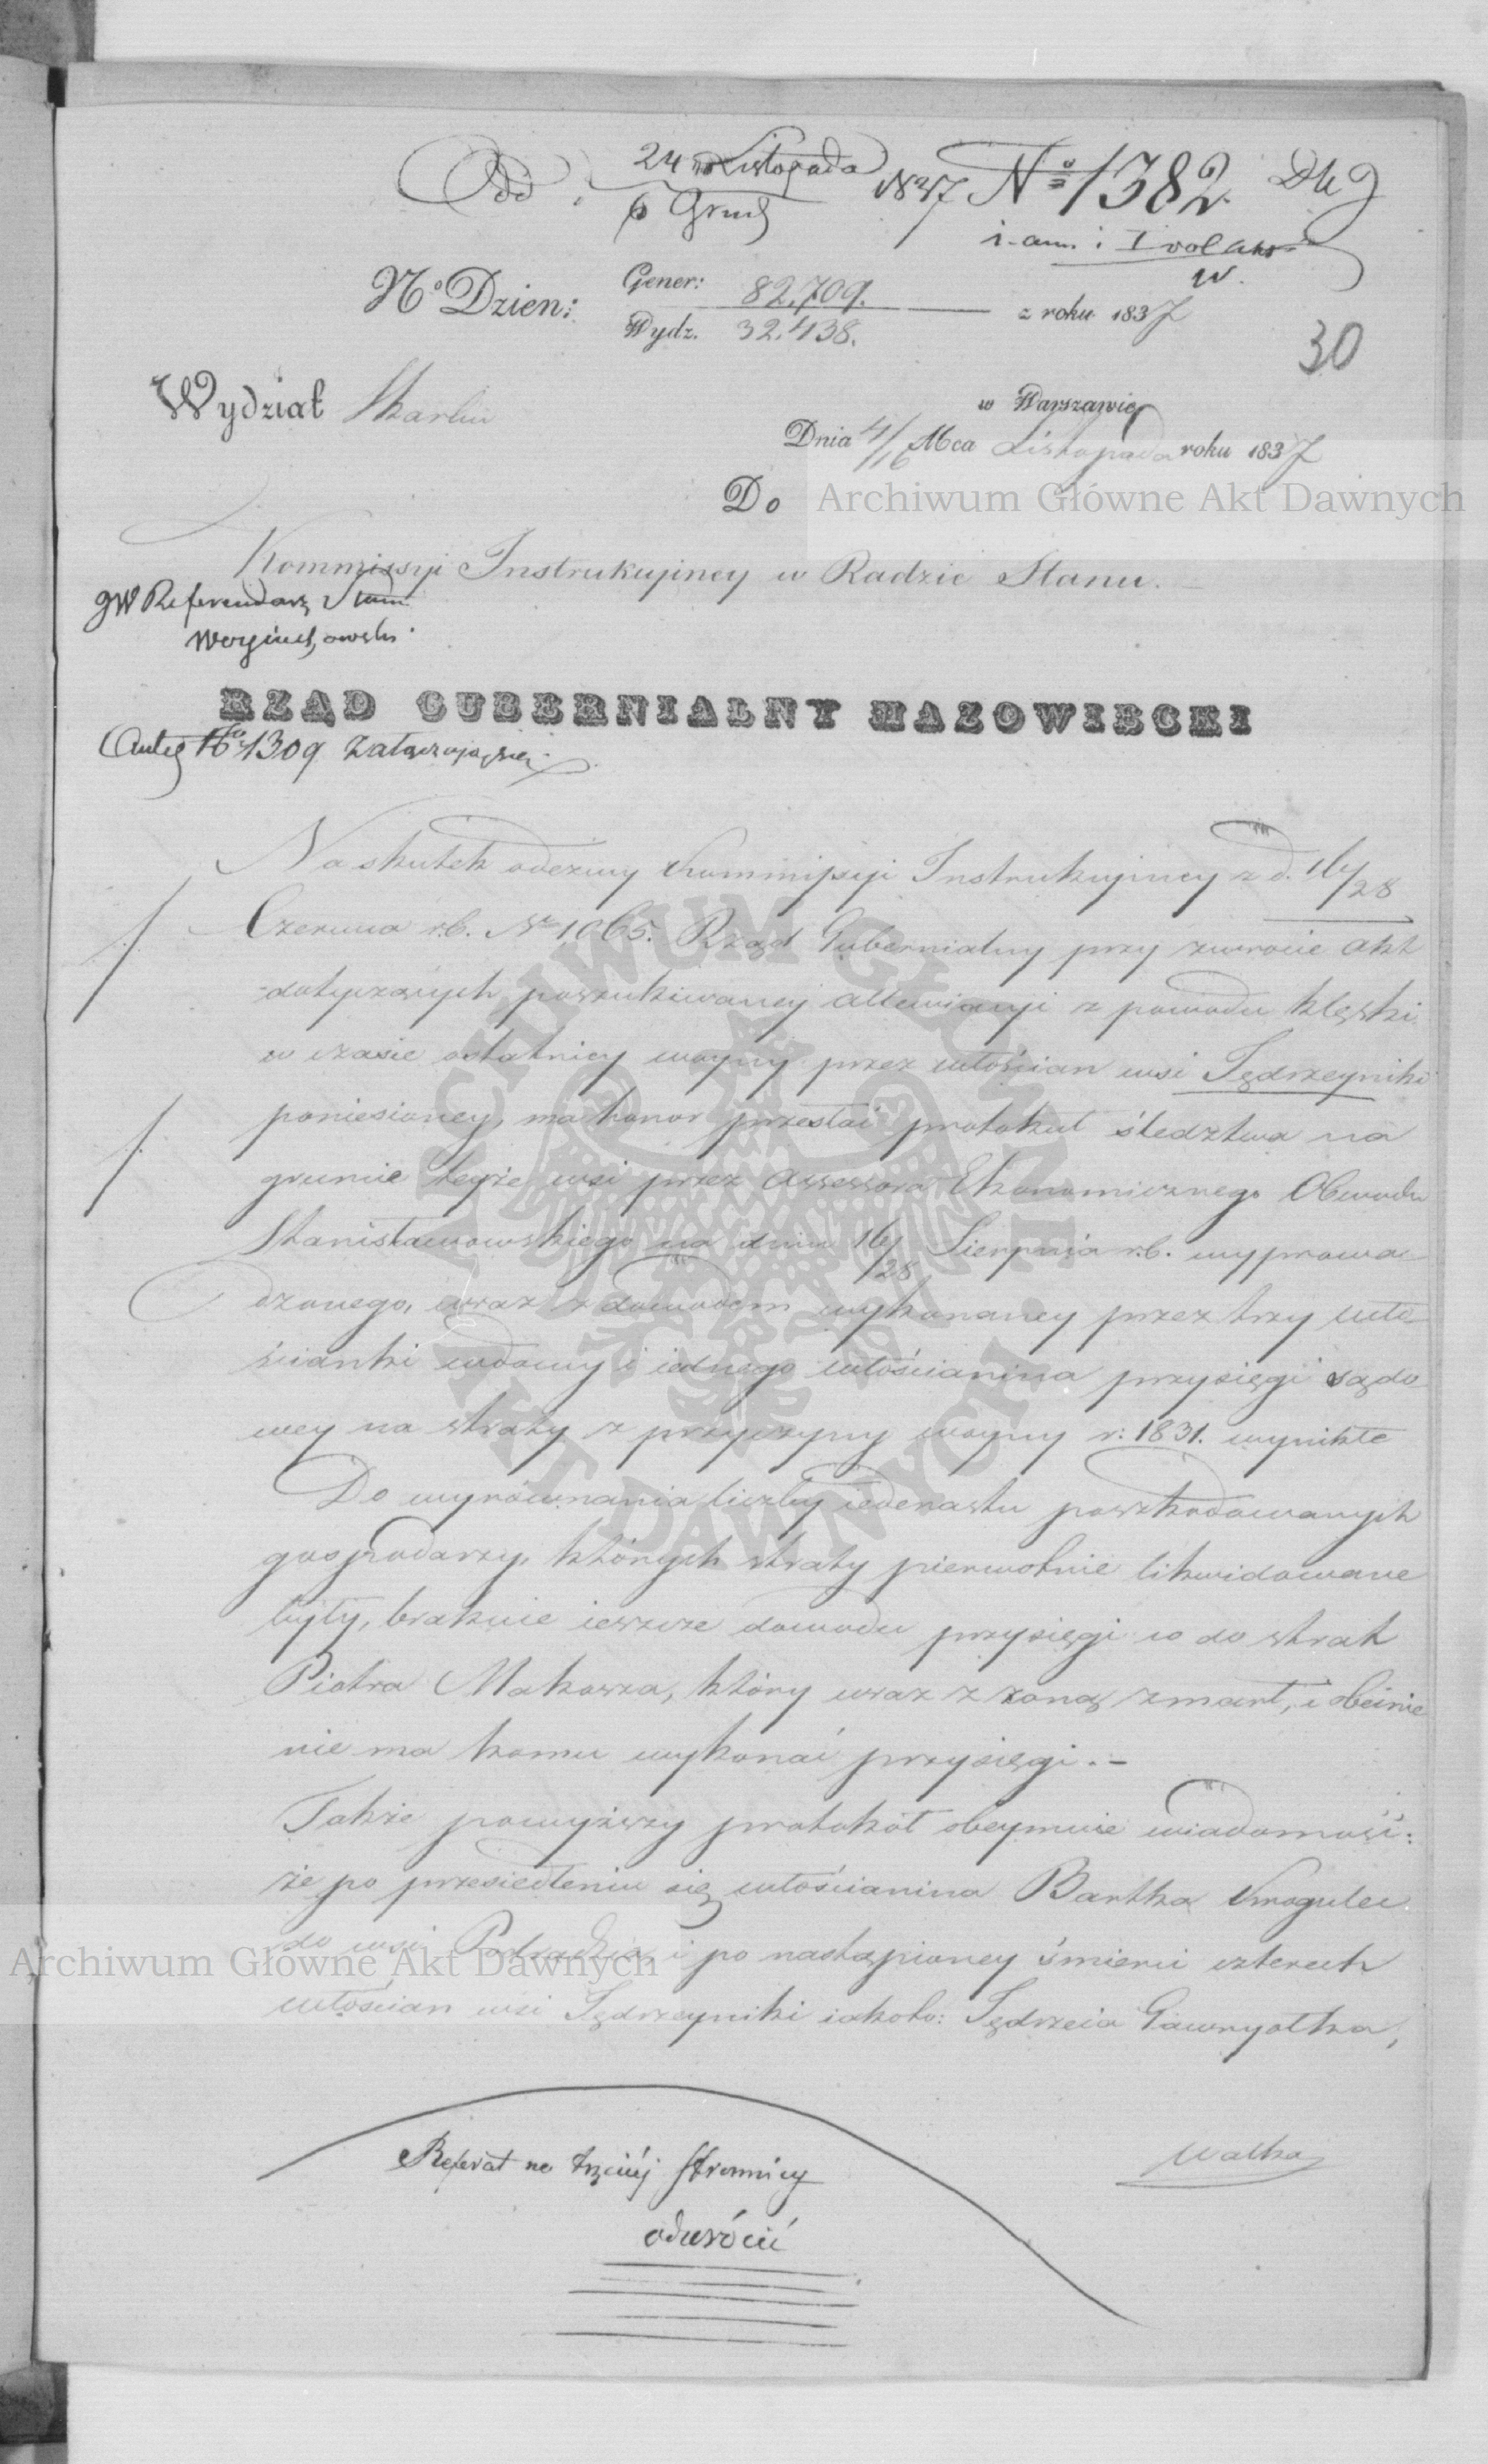 Odd. 24 Listopada 1837 Nº 1382 Dług
6 Grud
i. ann. i I vol akt
W.
Nº Dzien: Gener: 82,709. z roku 1837
Wydz. 32,438.
30
Wydział Skarbu
w Warszawie
Dnia 4/16 Mca Listopada roku 1837
Do
Archiwum Główne Akt Dawnych
Kommissyi Instrukcyiney w Radzie Stanu.
JW Referendarz Stanu
RZĄD GUBERNIALNY MAZOWIECKI
Nº 1309 załączając
Na skutek odezwy Kommissyi Instrukcyiney z d. 16/28
Czerwca r.b. Nr 1065. Rząd Gubernialny przy zwrocie akt
dotyczących poszukiwaney allewiacyi z powodu klęski
w czasie ostatniey woyny przez włościan wsi Jędrzeyniki
poniesioney, ma honor przesłać protokuł śledztwa na
gruncie teyże wsi przez Assessora Ekonomicznego Obwodu
Stanisławowskiego na dniu 16/28 Sierpnia r.b. wyprowa-
dzonego, wraz z dowodem wykonaney przez trzy wło-
ścianki wdowy i iednego włościanina przysięgi sądo-
wey na straty z przyczyny woyny r: 1831. wynikłe
Do wyrównania liczby iedenastu poszkodowanych
gospodarzy, których straty pierwotnie likwidowane
były, brakuie ieszcze dowodu przysięgi co do strat
Piotra Makosza, który wraz z żoną zmarł, i obecnie
nie ma komu wykonać przysięgi.-
Także powyższy protokół obeymuie wiadomość:
że po przesiedleniu się włościanina Bartka Kmogulec
do wsi i po nastąpioney śmierci czterech
włościan wsi Jędrzeyniki iakoto: Jędrzeia Gawryołka,
Archiwum Główne Akt Dawnych
Walka
Referat na trzeciéj stronnicy
odwrócić
ARCHIWUM GŁÓWNE AKT DAWNYCH